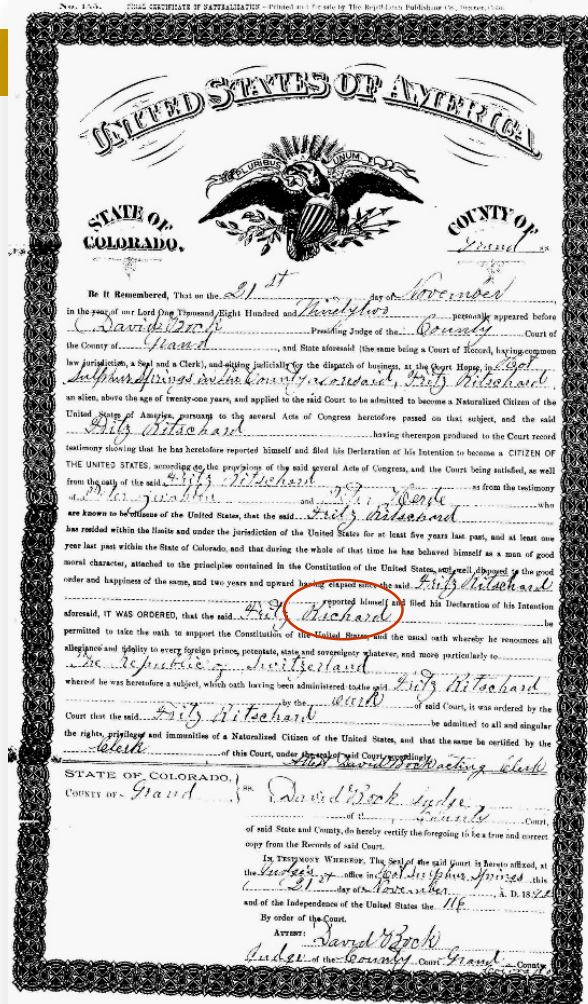 No. 155. FINAL CERTIFICATE OF NATURALIZATION—Printed and for sale by The Republican Publishing Co., Denver, Colo.
UNITED STATES OF AMERICA.
E PLURIBUS UNUM
STATE OF COLORADO,
COUNTY OF Grand ss.
Be it Remembered, That on the 21st day of November
in the year of our Lord One Thousand Eight Hundred and Ninety two personally appeared before
David Bock Presiding Judge of the County Court of
the County of Grand, and State aforesaid (the same being a Court of Record, having common
law jurisdiction, a Seal and a Clerk), and sitting judicially for the dispatch of business, at the Court House, in Hot
Sulphur Springs in the County aforesaid, Fritz Ritschard
an alien, above the age of twenty-one years, and applied to the said Court to be admitted to become a Naturalized Citizen of the
United States of America, pursuant to the several Acts of Congress heretofore passed on that subject, and the said
Fritz Ritschard having thereupon produced to the Court record
testimony showing that he has heretofore reported himself and filed his Declaration of his Intention to become a CITIZEN OF
THE UNITED STATES, according to the provisions of the said several Acts of Congress, and the Court being satisfied, as well
from the oath of the said Fritz Ritschard as from the testimony
of and who
are known to be citizens of the United States, that the said Fritz Ritschard
has resided within the limits and under the jurisdiction of the United States for at least five years last past, and at least one
year last past within the State of Colorado, and that during the whole of that time he has behaved himself as a man of good
moral character, attached to the principles contained in the Constitution of the United States, and well disposed to the good
order and happiness of the same, and two years and upward having elapsed since the said Fritz Ritschard
reported himself and filed his Declaration of his Intention
aforesaid, IT WAS ORDERED, that the said Fritz Richard be
permitted to take the oath to support the Constitution of the United States, and the usual oath whereby he renounces all
allegiance and fidelity to every foreign prince, potentate, state and sovereignty whatever, and more particularly to
The Republic of Switzerland
whereof he was heretofore a subject, which oath having been administered to the said Fritz Ritschard
by the Clerk of said Court, it was ordered by the
Court that the said Fritz Ritschard be admitted to all and singular
the rights, privileges and immunities of a Naturalized Citizen of the United States, and that the same be certified by the
Clerk of this Court, under the seal of said Court, accordingly.
Attest David Bock acting Clerk
STATE OF COLORADO,
COUNTY OF Grand ss.
David Bock Judge
of County Court,
of said State and County, do hereby certify the foregoing to be a true and correct
copy from the Records of said Court.
IN TESTIMONY WHEREOF, The Seal of the said Court is hereto affixed, at
the Judge's office in Hot Sulphur Springs this
21st day of November A. D. 1892
and of the Independence of the United States the 116
By order of the Court.
ATTEST: David Bock
Judge of the County Court Grand County